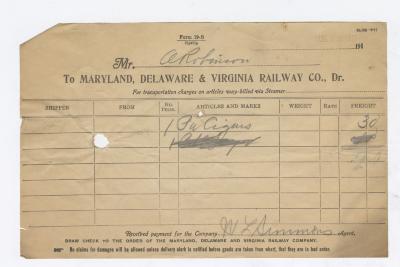 Form 39-B
191
Mr. A Robinson
To MARYLAND, DELAWARE & VIRGINIA RAILWAY CO., Dr.
For transportation charges on articles way-billed via Steamer
SHIPPER FROM No. PKGS. ARTICLES AND MARKS WEIGHT RATE FREIGHT
1 Bx Cigars 30
Received payment for the Company, W L Simmons Agent.
DRAW CHECK TO THE ORDER OF THE MARYLAND, DELAWARE AND VIRGINIA RAILWAY COMPANY.
No claims for damages will be allowed unless delivery clerk is notified before goods are taken from wharf, that they are in bad order.